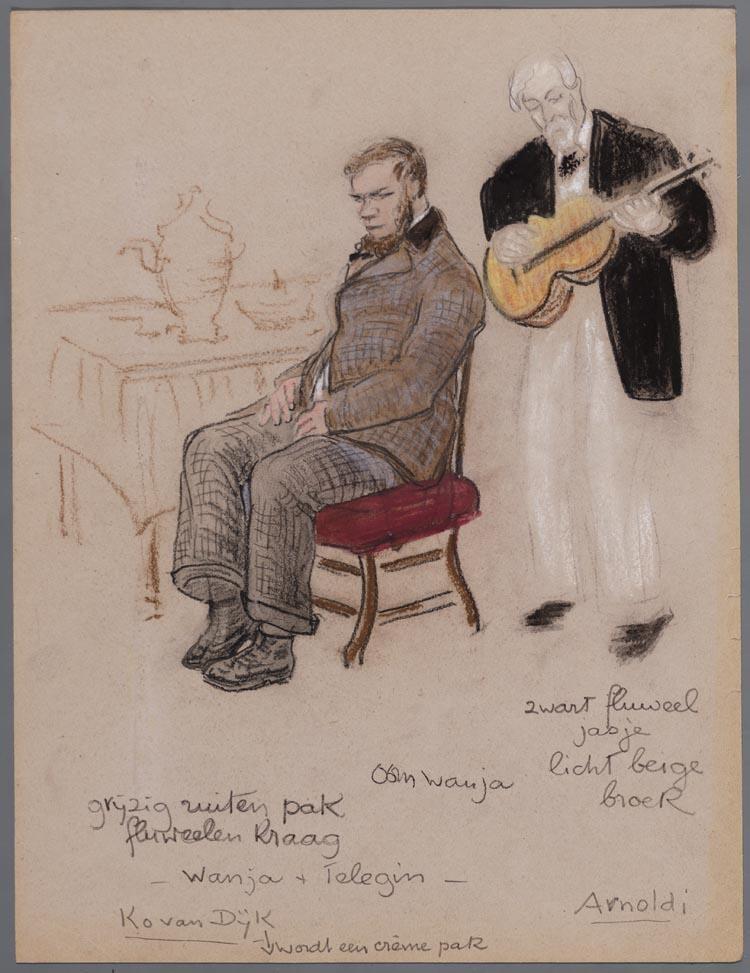 zwart fluweel
jasje
licht beige
broek
Oom Wanja
grijzig ruiten pak
fluweelen kraag
- Wanja + Telegin -
Ko van Dijk
↳ wordt een crème pak
Arnoldi